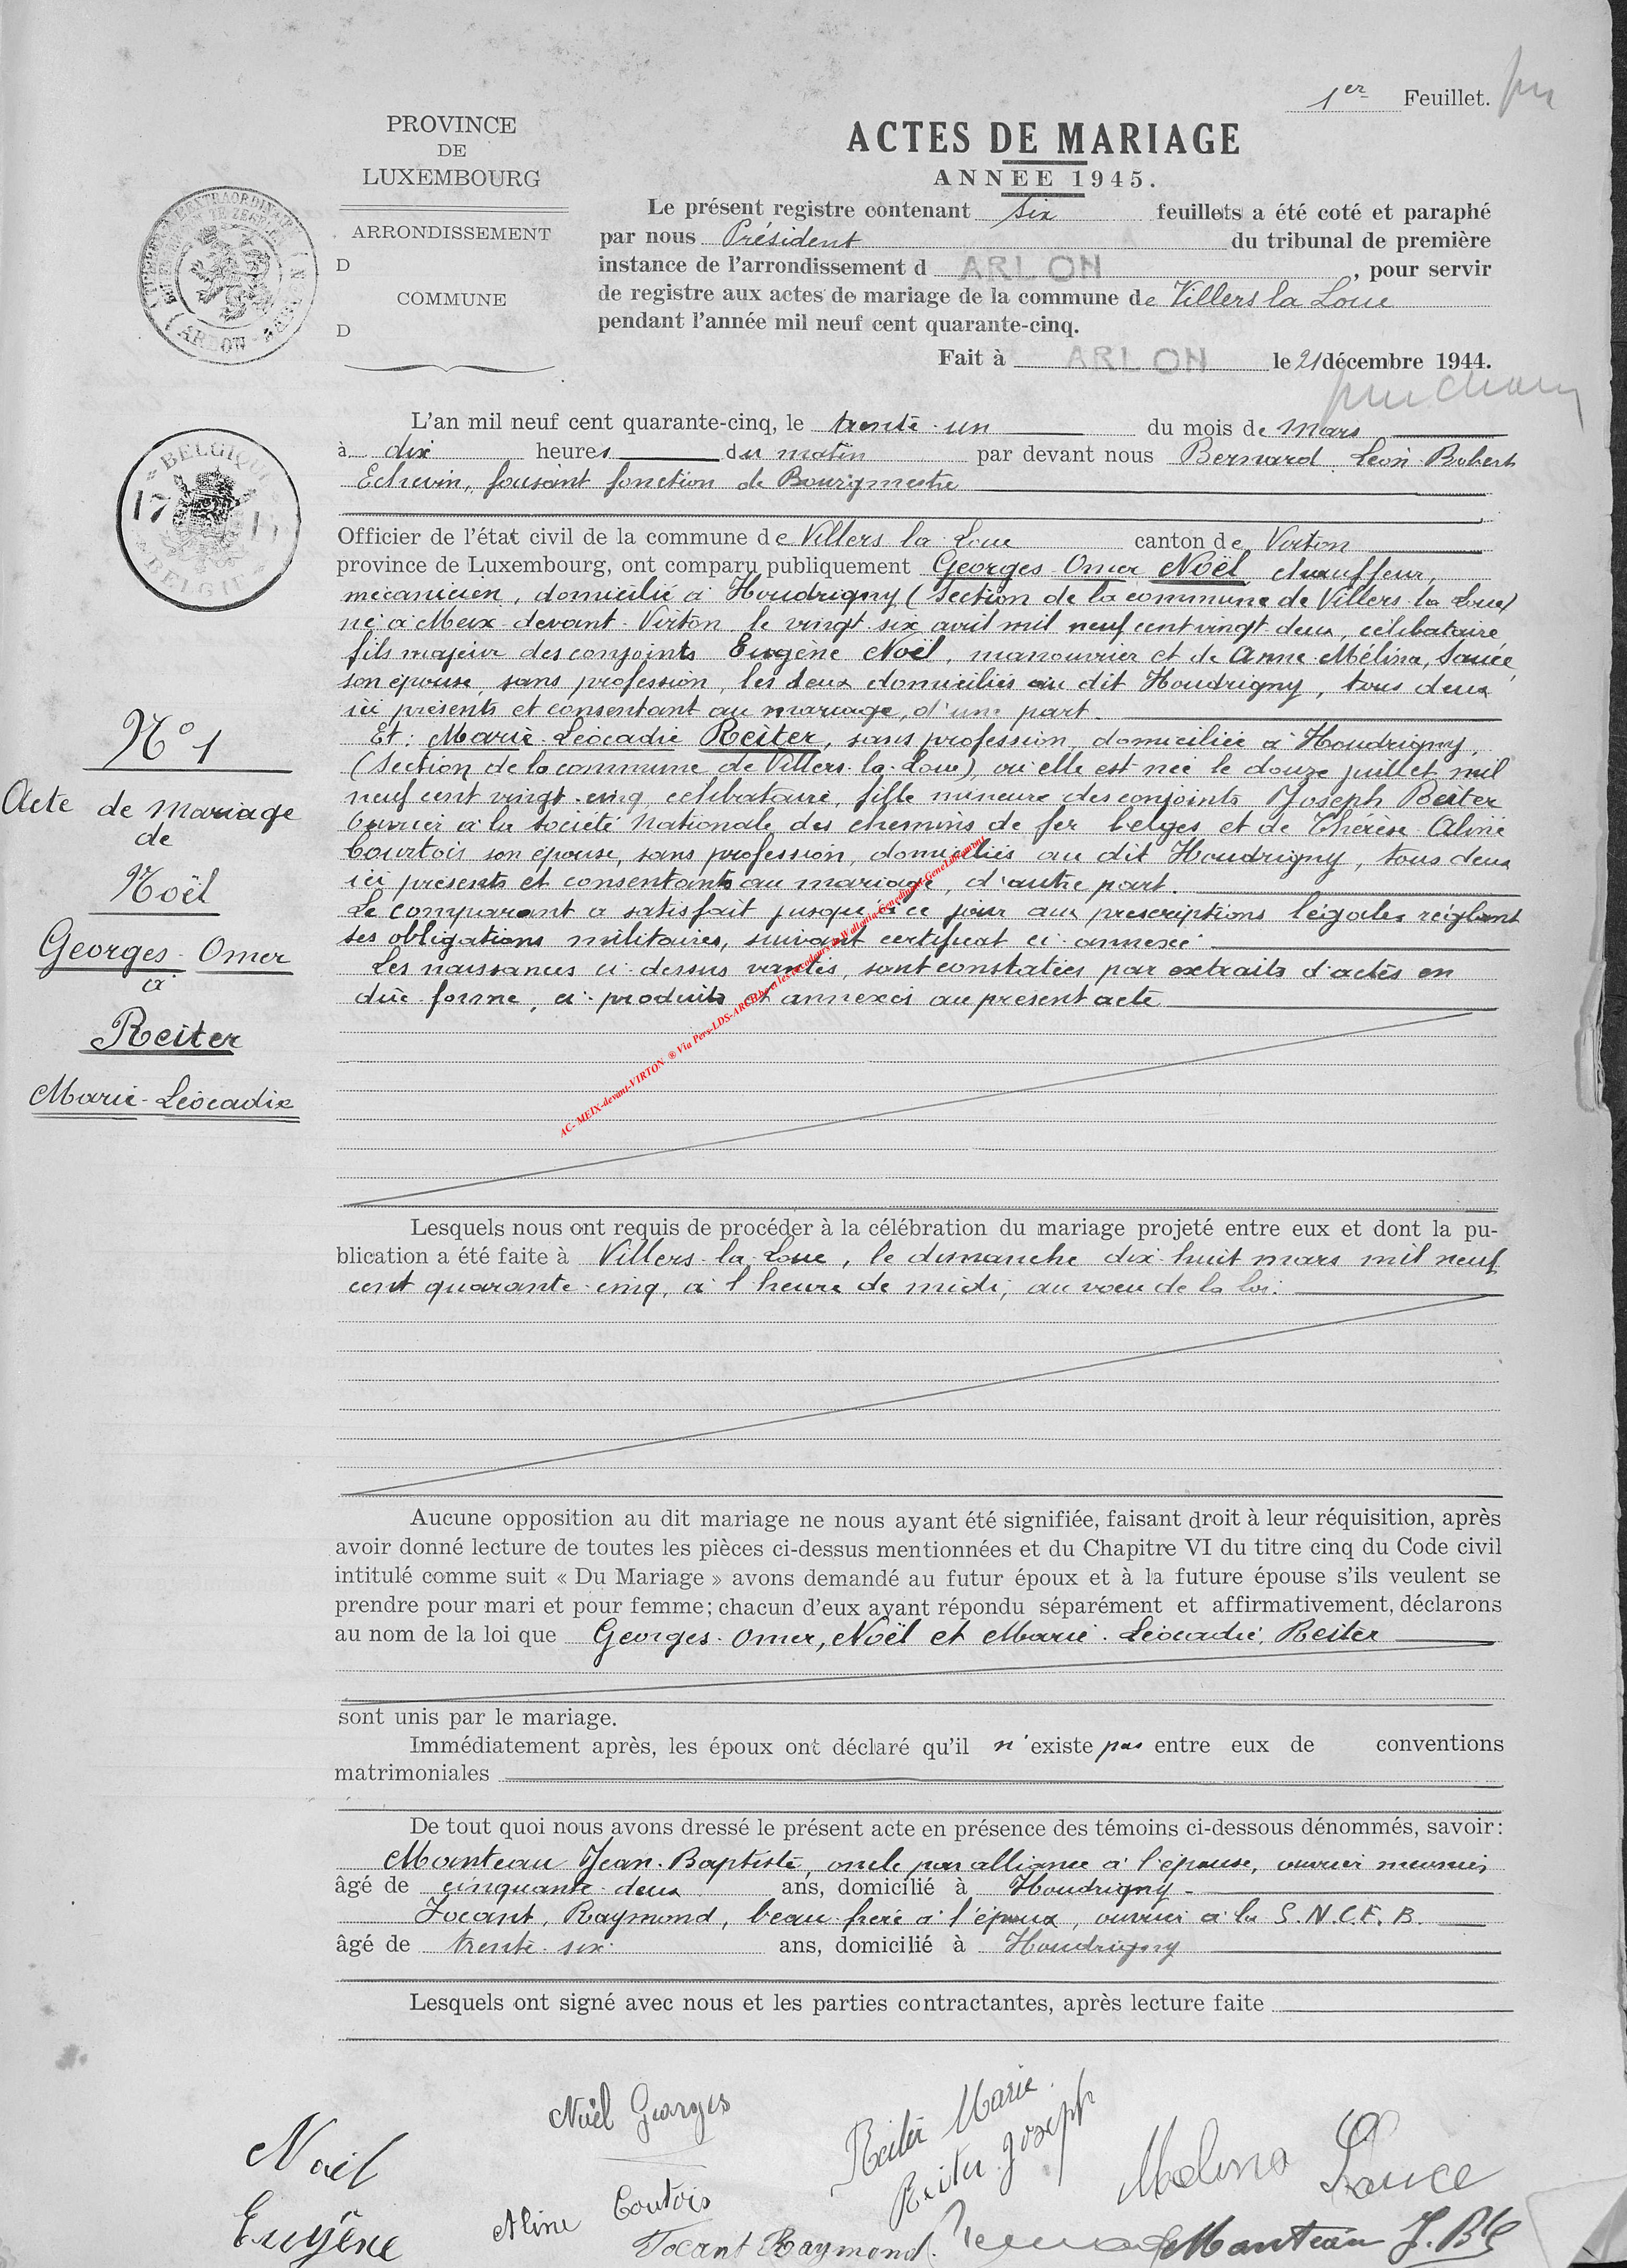 1er Feuillet.
PROVINCE
DE
LUXEMBOURG
ARRONDISSEMENT
D
COMMUNE
D
ACTES DE MARIAGE
ANNEE 1945.
Le présent registre contenant six feuillets a été coté et paraphé
par nous Président du tribunal de première
instance de l'arrondissement d ARLON, pour servir
de registre aux actes de mariage de la commune de Villers la Loue
pendant l'année mil neuf cent quarante-cinq.
Fait à ARLON le 21 décembre 1944.
BELGIQUE
17 17
BELGIE
L'an mil neuf cent quarante-cinq, le trente-un du mois de Mars
à dix heures du matin par devant nous Bernard Léon Robert
Echevin, faisant fonction de Bourgmestre
Officier de l'état civil de la commune de Villers la Loue canton de Virton
province de Luxembourg, ont comparu publiquement Georges-Omer Noël, chauffeur,
mécanicien, domicilié à Houdrigny (Section de la commune de Villers-la-Loue)
né à Meix-devant-Virton le vingt-six avril mil neuf cent vingt-deux, célibataire,
fils majeur des conjoints Eugène Noël, manouvrier et de Anne-Mélina,
son épouse, sans profession, les deux domiciliés au dit Houdrigny, tous deux
ici présents et consentant au mariage, d'une part.
Et: Marie-Léocadie Reiter, sans profession, domiciliée à Houdrigny,
(Section de la commune de Villers-la-Loue), où elle est née le douze juillet mil
neuf cent vingt-cinq, célibataire, fille mineure des conjoints Joseph Reiter
Ouvrier à la Société Nationale des chemins de fer belges et de Thérèse-Aline
Courtois son épouse, sans profession, domiciliés au dit Houdrigny, tous deux
ici présents et consentants au mariage, d'autre part.
Le comparant a satisfait jusqu'à ce jour aux prescriptions légales réglant
ses obligations militaires, suivant certificat ci-annexé
Les naissances ci-dessus vantées, sont constatées par extraits d'actes en
due forme, ci-produits et annexés au présent acte
AC- MEIX-devant-VIRTON ® Via Pers-LDS-ARCH
N° 1
Acte de Mariage
de
Noël
Georges-Omer
à
Reiter
Marie-Léocadie
Lesquels nous ont requis de procéder à la célébration du mariage projeté entre eux et dont la pu-
blication a été faite à Villers-la-Loue, le dimanche dix-huit mars mil neuf
cent quarante-cinq, à l'heure de midi, au voeu de la loi.
Aucune opposition au dit mariage ne nous ayant été signifiée, faisant droit à leur réquisition, après
avoir donné lecture de toutes les pièces ci-dessus mentionnées et du Chapitre VI du titre cinq du Code civil
intitulé comme suit « Du Mariage » avons demandé au futur époux et à la future épouse s'ils veulent se
prendre pour mari et pour femme; chacun d'eux ayant répondu séparément et affirmativement, déclarons
au nom de la loi que Georges-Omer, Noël et Marie-Léocadie, Reiter
sont unis par le mariage.
Immédiatement après, les époux ont déclaré qu'il n'existe pas entre eux de conventions
matrimoniales
De tout quoi nous avons dressé le présent acte en présence des témoins ci-dessous dénommés, savoir:
Manteau Jean-Baptiste, oncle par alliance à l'épouse, ouvrier meunier
âgé de cinquante-deux ans, domicilié à Houdrigny
Jocant, Raymond, beau-frère à l'époux, ouvrier à la S.N.C.F.B.
âgé de trente-six ans, domicilié à Houdrigny
Lesquels ont signé avec nous et les parties contractantes, après lecture faite
Noël Georges
Reiter Marie
Reiter Joseph
Melina
Noël
Eugène
Aline Courtois
Jocant Raymond.
Manteau J. Bte